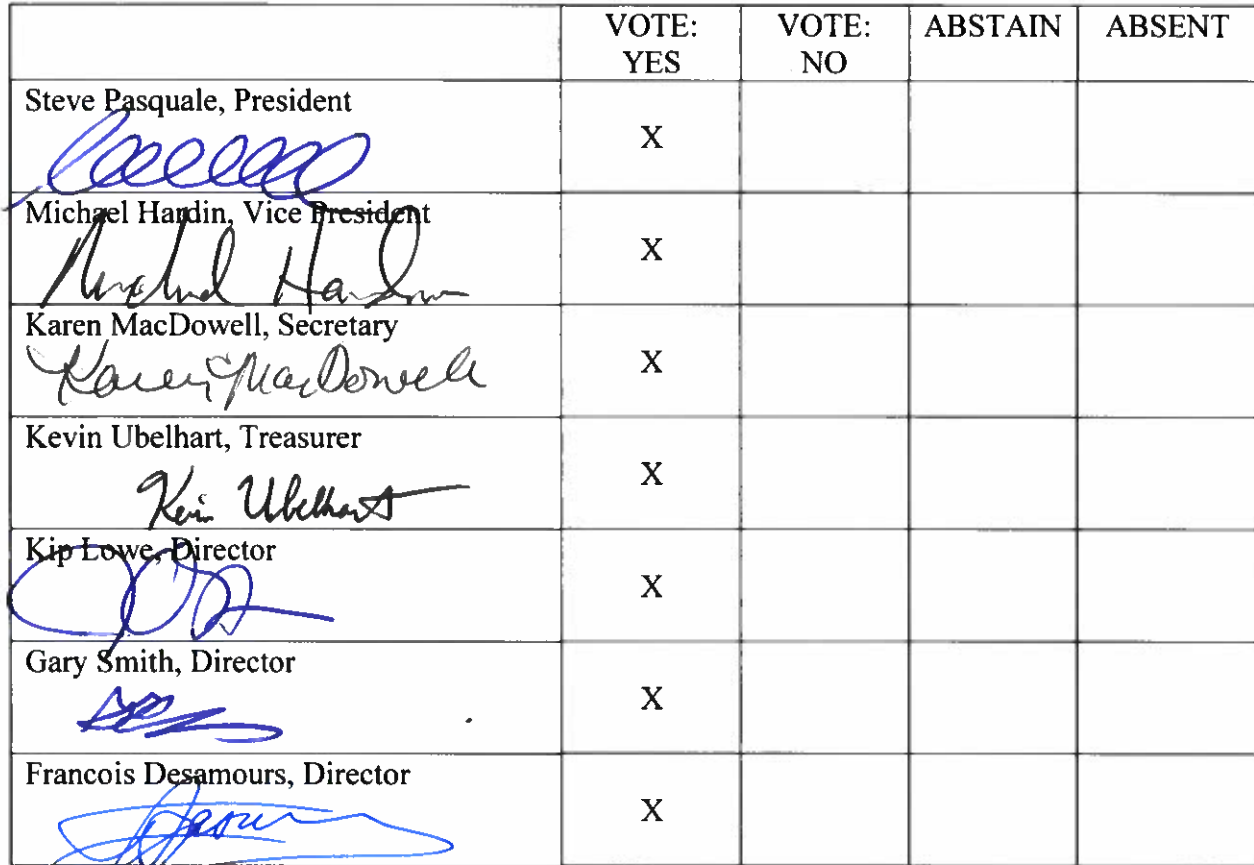 VOTE: YES VOTE: NO ABSTAIN ABSENT
Steve Pasquale, President
X
Michael Hardin, Vice President
X
Michael Hardin
Karen MacDowell, Secretary
X
Karen MacDowell
Kevin Ubelhart, Treasurer
X
Kevin Ubelhart
Kip Lowe, Director
X
Gary Smith, Director
X
Francois Desamours, Director
X